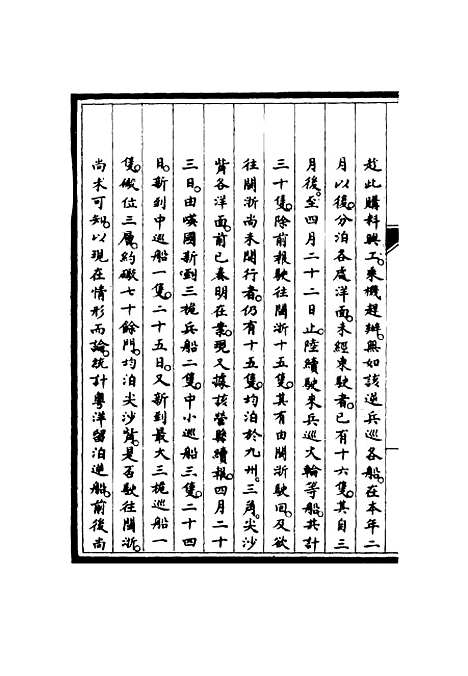 趁此購料興工乘機趕辦無如該逆兵巡各船在本年二
月以後分泊各處洋面未經東駛者已有十六隻其自三
月後至四月二十二日止陸續駛來兵巡火輪等船共計
三十隻除前報駛往閩浙十五隻其有由閩浙駛回及欲
往閩浙尚未開行者仍有十五隻均泊於九州三角尖沙
觜各洋面前已奏明在案現又據該營縣續報四月二十
三日由嘆國新到三桅兵船二隻中小巡船三隻二十四
日新到中巡船一隻二十五日又新到最大三桅巡船一
隻礮位三層約礮七十餘門均泊尖沙觜是否駛往閩浙
尚未可知以現在情形而論統計粵洋留泊逆船前後尚